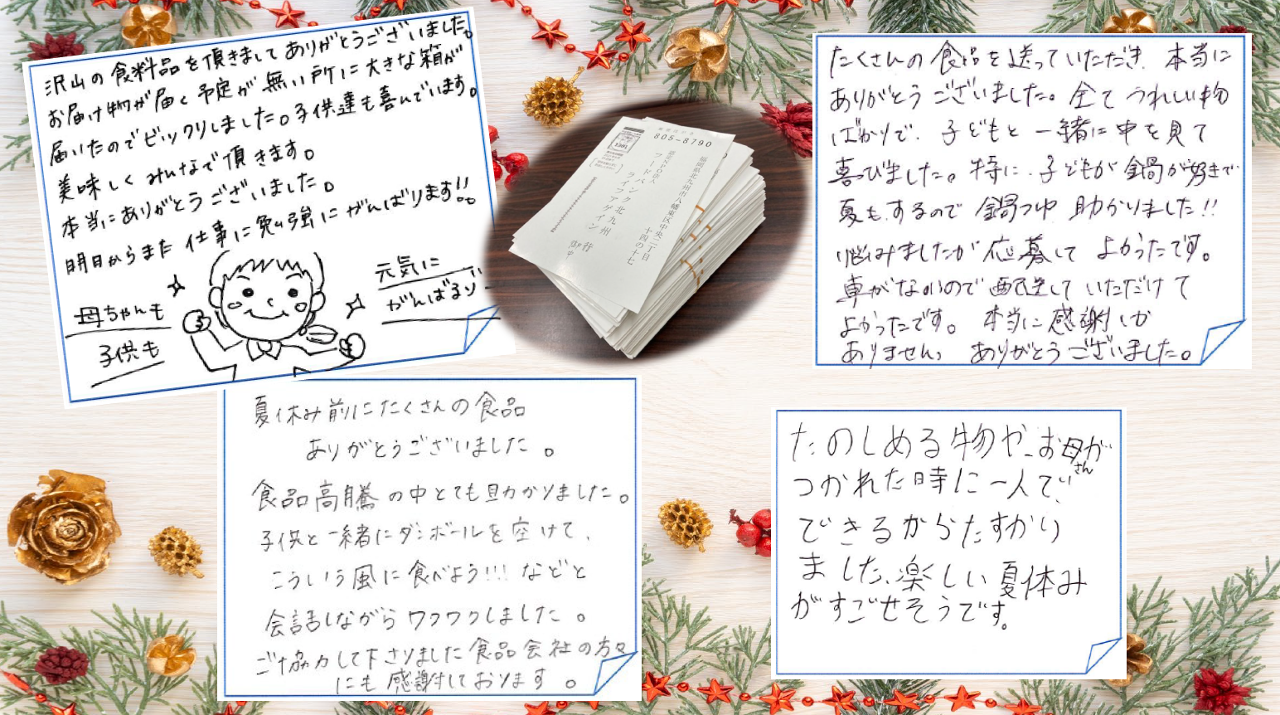 沢山の食料品を頂きましてありがとうございました。
お届け物が届く予定が無い所に大きな箱が
届いたのでビックリしました。子供達も喜んでいます。
美味しくみんなで頂きます。
本当にありがとうございました。
明日からまた仕事に勉強にがんばります!!
母ちゃんも
子供も
元気に
がんばるゾ
805-8790
福岡県北九州市八幡東区中央二丁目
十四の十七
フードバンク北九州
ライフアゲイン 行
たくさんの食品を送っていただき、本当に
ありがとうございました。全てうれしい物
ばかりで、子どもと一緒に中を見て
喜びました。特に、子どもが鍋が好きで
夏も、するので鍋つゆ助かりました!!
悩みましたが応募してよかったです。
車がないので配送していただけて
よかったです。本当に感謝しか
ありません。ありがとうございました。
夏休み前にたくさんの食品
ありがとうございました。
食品高騰の中とても助かりました。
子供と一緒にダンボールを空けて、
こういう風に食べよう!!!などと
会話しながらワクワクしました。
ご協力して下さりました食品会社の方々
にも感謝しております。
たのしめる物や、お母さんが
つかれた時に一人で、
できるからたすかり
ました、楽しい夏休み
がすごせそうです。